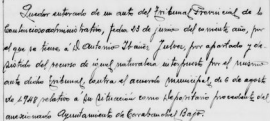 Quedar enterado de un auto del Tribunal Provincial de lo
Contencioso administrativo, fecha 23 de junio del corriente año, por
el que se tiene a D. Antonio Ibañez Julvez, por apartado y de-
sistido del recurso de igual naturaleza interpuesto por el mismo
ante dicho Tribunal, contra el acuerdo municipal de 6 de agosto
de 1948 relativo a su situación como Depositario procedente del
anexionado Ayuntamiento de Carabanchel Bajo.